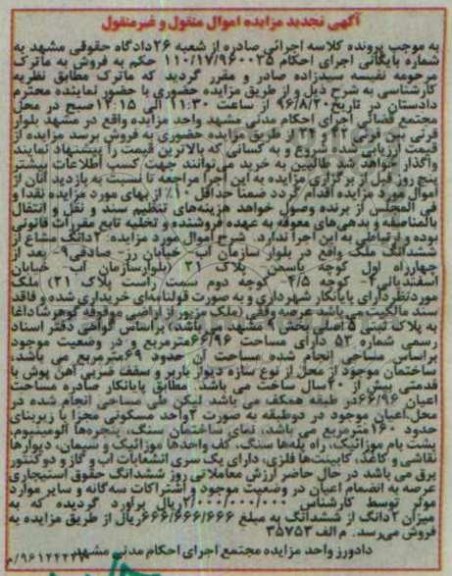 آگهی تجدید مزایده اموال منقول و غیرمنقول
به موجب پرونده کلاسه اجرائی صادره از شعبه ۲۶ دادگاه حقوقی مشهد به
شماره بایگانی اجرای احکام ۱۱۰/۱۷/۹۶۰۰۲۵ حکم به فروش به ماترک
مرحومه نفیسه سیدزاده صادر و مقرر گردید که ماترک مطابق نظریه
کارشناسی به شرح ذیل و از طریق مزایده حضوری با حضور نماینده محترم
دادستان در تاریخ ۹۶/۸/۲۰ از ساعت ۱۱:۳۰ الی ۱۲:۱۵ صبح در محل
مجتمع قضائی اجرای احکام مدنی مشهد واحد مزایده واقع در مشهد بلوار
قرنی بین قرنی ۲۲ و ۲۴ از طریق مزایده حضوری به فروش برسد مزایده از
قیمت ارزیابی شده شروع و به کسانی که بالاترین قیمت را پیشنهاد نمایند
واگذار خواهد شد طالبین به خرید می‌توانند جهت کسب اطلاعات بیشتر
پنج روز قبل از برگزاری مزایده به این اجرا مراجعه تا نسبت به بازدید آنان از
اموال مورد مزایده اقدام گردد ضمنا حداقل ۱۰٪ از بهای مورد مزایده نقدا و
فی المجلس از برنده وصول خواهد هزینه‌های تنظیم سند و نقل و انتقال
بالمناصفه و بدهی‌های معوقه به عهده فروشنده و تخلیه تابع مقررات قانونی
بوده و ارتباطی به این اجرا ندارد. شرح اموال مورد مزایده: ۲ دانگ مشاع از
ششدانگ ملک واقع در بلوار سازمان آب- خیابان رز- صادقی ۹- بعد از
چهارراه اول کوچه یاسمن- پلاک ۳۱ (بلوار سازمان آب- خیابان
اسفندیانی ۲- کوچه ۴/۵- کوچه دوم سمت راست پلاک ۳۱) ملک
موردنظر دارای پایانکار شهرداری و به صورت قولنامه‌ای خریداری شده و فاقد
سند مالکیت می باشد عرصه وقفی (ملک مزبور از اراضی موقوفه گوهرشادآغا
به پلاک ثبتی ۵ اصلی بخش ۹ مشهد می باشد) براساس گواهی دفتر اسناد
رسمی شماره ۵۳ دارای مساحت ۶۶/۹۶ مترمربع و در وضعیت موجود
براساس مساحی انجام شده مساحت آن حدود ۶۹ مترمربع می باشد،
ساختمان موجود از محل از نوع سازه دیوار باربر و سقف ضربی آهن پوش با
قدمتی بیش از ۲۰ سال ساخت می باشد. مطابق پایانکار صادره مساحت
اعیان ۶۶/۹۶ در طبقه همکف می باشد لیکن طی مساحی انجام شده در
محل، اعیان موجود در دوطبقه به صورت ۲ واحد مسکونی مجزا با زیربنای
حدود ۱۶۰ مترمربع می باشد، نمای ساختمان سنگ، پنجره‌ها آلومینیوم،
پشت بام موزائیک، راه پله‌ها سنگ، کف واحدها موزائیک و سیمان، دیوارها
نقاشی و کاغذ، کابینت‌ها فلزی، دارای یک سری انشعابات آب و گاز و دو کنتور
برق می باشد در حال حاضر ارزش معاملاتی روز ششدانگ حقوق استیجاری
عرصه به انضمام اعیان در وضعیت موجود و اشتراکات سه‌گانه و سایر موارد
موثر توسط کارشناس ۲/۰۰۰/۰۰۰/۰۰۰ ریال برآورد گردیده که به
میزان ۲ دانگ از ششدانگ به مبلغ ۶۶۶/۶۶۶/۶۶۶ ریال از طریق مزایده به
فروش می‌رسد. م الف ۳۵۷۵۳
دادورز واحد مزایده مجتمع اجرای احکام مدنی مشهد